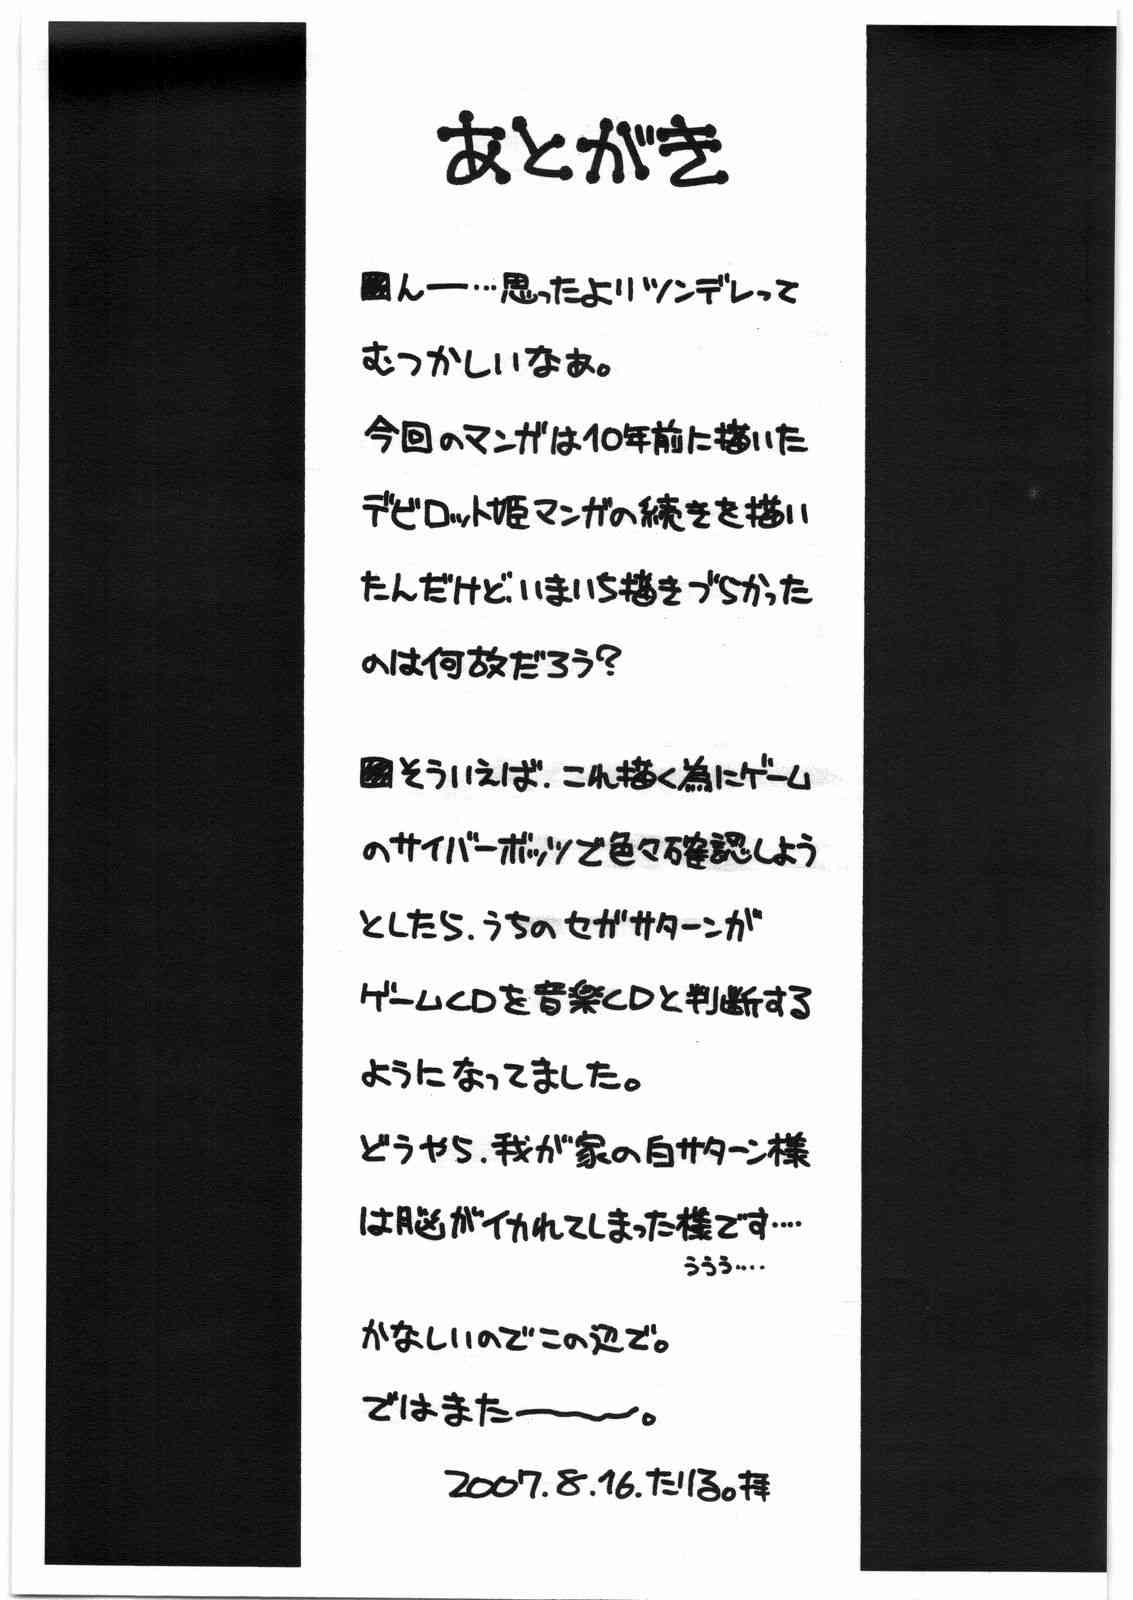 あとがき
■んー…思ったよりツンデレって
むつかしいなぁ。
今回のマンガは10年前に描いた
デビロット姫マンガの続きを描い
たんだけど、いまいち描きづらかった
のは何故だろう?
■そういえば、これ描く為にゲーム
のサイバーボッツで色々確認しよう
としたら、うちのセガサターンが
ゲームCDを音楽CDと判断する
ようになってました。
どうやら、我が家の白サターン様
は脳がイカれてしまった様です‥‥
ううう‥‥
かなしいのでこの辺で。
ではまた――~。
2007.8.16.たりる。拝